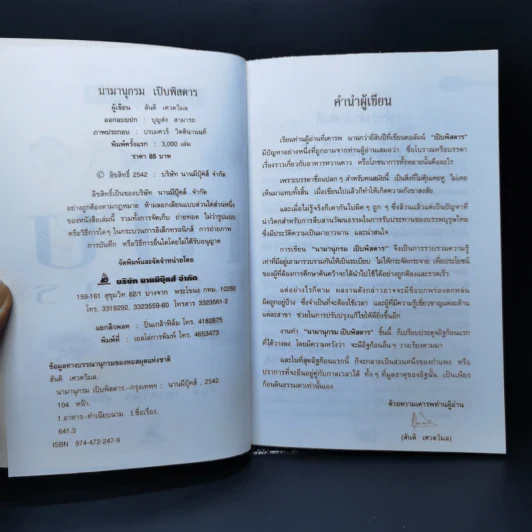 นามานุกรม เปิบพิสดาร
ผู้เขียน : สันติ เศวตวิมล
ออกแบบปก : บุญส่ง สามารถ
ภาพประกอบ : ปรเมศวร์
พิมพ์ครั้งแรก : 3,000 เล่ม
ราคา 85 บาท
© ลิขสิทธิ์ 2542 : บริษัท นานมีบุ๊คส์ จำกัด
ลิขสิทธิ์เป็นของบริษัท นานมีบุ๊คส์ จำกัด
อย่างถูกต้องตามกฎหมาย ห้ามลอกเลียนแบบส่วนใดส่วนหนึ่ง
ของหนังสือเล่มนี้ รวมทั้งการจัดเก็บ ถ่ายทอด ไม่ว่ารูปแบบ
หรือวิธีการใดๆ ในกระบวนการอิเล็กทรอนิกส์ การถ่ายภาพ
การบันทึก หรือวิธีการอื่นใดโดยไม่ได้รับอนุญาต
จัดพิมพ์และจัดจำหน่ายโดย
บริษัท นานมีบุ๊คส์ จำกัด
159-161 สุขุมวิท 62/1 บางจาก พระโขนง กทม. 10250
โทร. 3319292, 3559559-60 โทรสาร 3323561-2
แยกสี/เพลท : ปิ่นเกล้าฟิล์ม โทร. 4182875
พิมพ์ที่ : เยลโล่การพิมพ์ โทร. 4653473
ข้อมูลทางบรรณานุกรมของหอสมุดแห่งชาติ
สันติ เศวตวิมล.
นามานุกรม เปิบพิสดาร.--กรุงเทพฯ : นานมีบุ๊คส์, 2542.
104 หน้า.
1.อาหาร--ทำเนียบนาม. I.ชื่อเรื่อง.
641.3
ISBN 974-472-247-9
คำนำผู้เขียน
เรียนท่านผู้อ่านที่เคารพ นานกว่ายี่สิบปีที่เขียนคอลัมน์ "เปิบพิสดาร"
มีปัญหาอย่างหนึ่งที่ถูกถามจากท่านผู้อ่านเสมอว่า ชื่อโบราณหรือบรรดา
เรื่องราวเกี่ยวกับอาหารหวานคาว หรือโภชนาการทั้งหลายนั้นคืออะไร
เพราะบรรดาชื่อแปลกๆ สำหรับคนสมัยนี้ เป็นสิ่งที่ไม่คุ้นเคยหู ไม่เคย
เห็นมาแทบทั้งสิ้น เมื่อเขียนไปแล้วก็ทำให้เกิดความกังขาสงสัย
และเมื่อไม่รู้จริงก็เดากันไปผิดๆ ถูกๆ ซึ่งล้วนแล้วแต่เป็นปัญหาที่
น่าวิตกสำหรับการสืบสานวัฒนธรรมในการรับประทานของบรรพบุรุษไทย
ซึ่งมีประวัติความเป็นมายาวนาน และน่าสนใจ
การเขียน "นามานุกรม เปิบพิสดาร" จึงเป็นการรวบรวมความรู้
เก่าที่มีอยู่เอามารวบรวมกันให้เป็นระเบียบ ไม่ให้กระจัดกระจาย เพื่อประโยชน์
ของผู้ที่ต้องการศึกษาค้นคว้าจะได้นำไปใช้ได้อย่างถูกต้องและรวดเร็ว
แต่อย่างไรก็ตาม ผลงานดังกล่าวอาจจะมีข้อบกพร่องตกหล่น
ผิดถูกอยู่บ้าง ซึ่งจำเป็นที่จะต้องใช้เวลา และผู้ที่มีความรู้เชี่ยวชาญแต่ละด้าน
แต่ละสาขา ช่วยในการปรับปรุงแก้ไขให้ดียิ่งขึ้นอีก
งานทำ "นามานุกรม เปิบพิสดาร" ชิ้นนี้ ก็เปรียบประดุจอิฐก้อนแรก
ที่ได้วางลง โดยมีความหวังว่า จะมีอิฐก้อนอื่นๆ วางเรียงตามมา
และในที่สุดอิฐก้อนแรกนี้ ก็จะกลายเป็นส่วนหนึ่งของกำแพง หรือ
ปราการที่จะยืนอยู่คู่กับกาลเวลาได้ ทั้งๆ ที่มูลธาตุของอิฐนั้น เป็นเพียง
ก้อนดินธรรมดาเท่านั้นเอง
ด้วยความเคารพท่านผู้อ่าน
(สันติ เศวตวิมล)